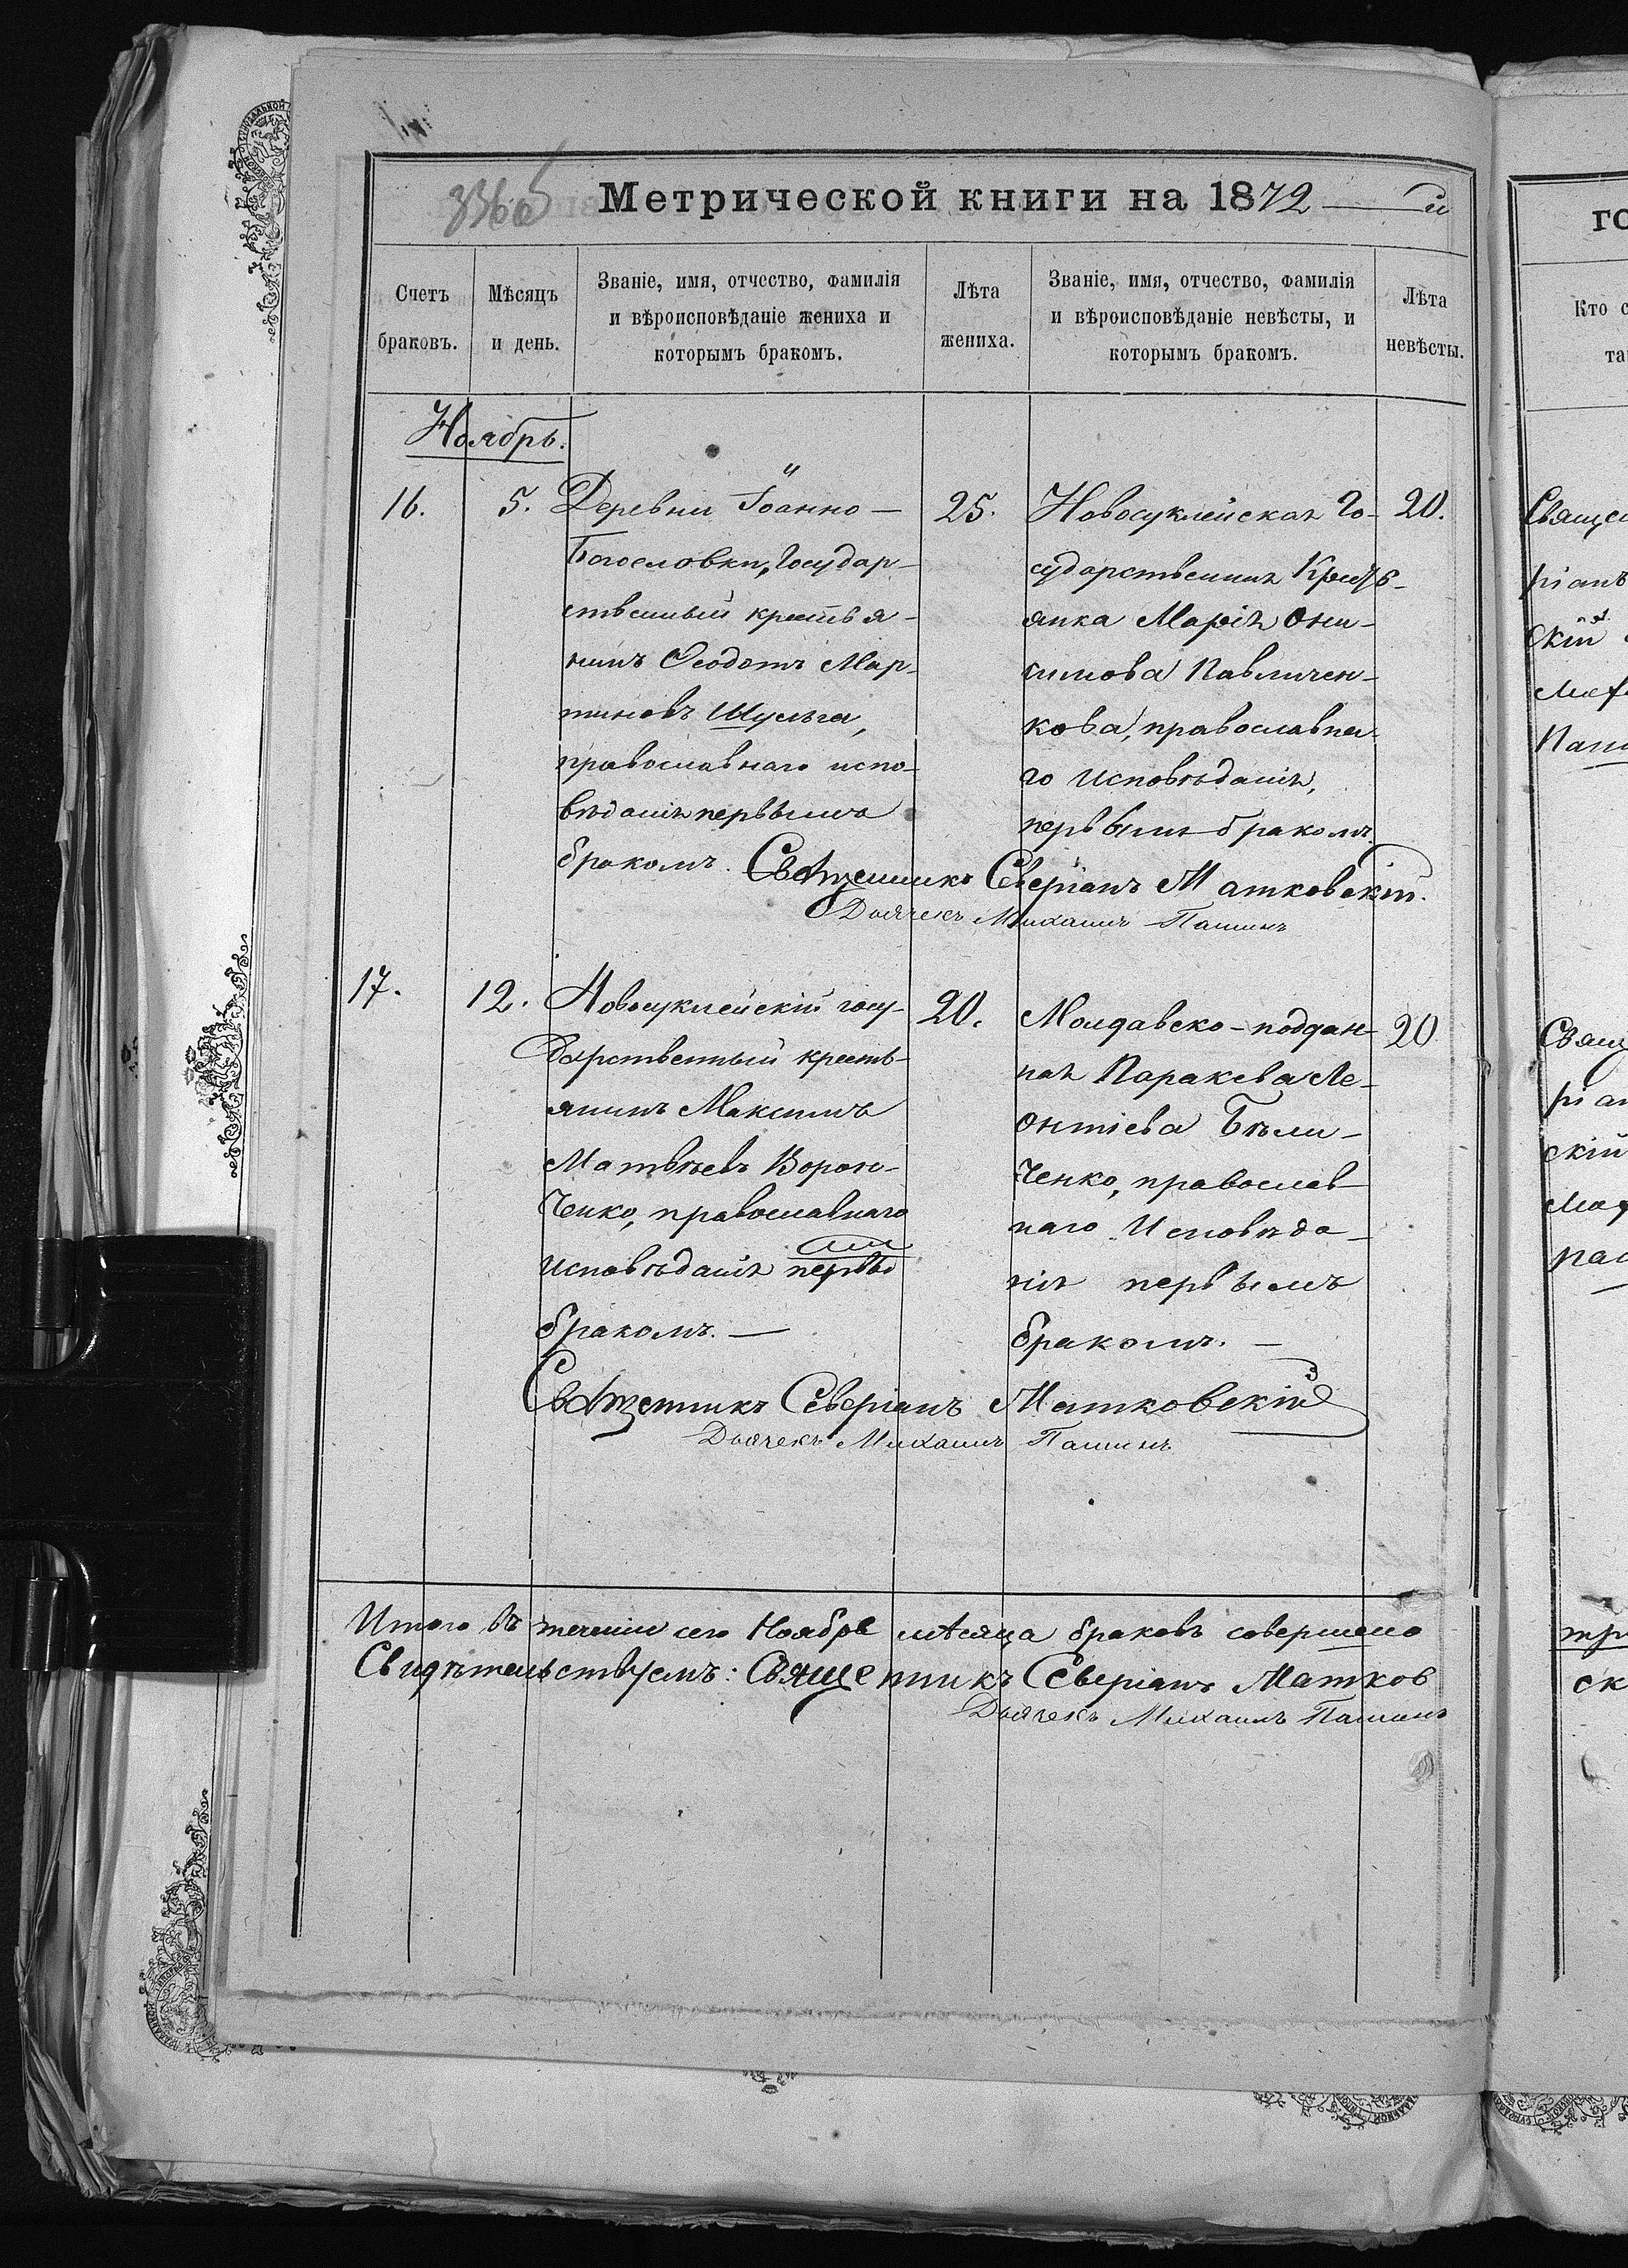 336 об
Метрической книги на 1872 — й
Счетъ браковъ.
Мѣсяцъ и день.
Званіе, имя, отчество, фамилія
и вѣроисповѣданіе жениха и
которымъ бракомъ.
Лѣта жениха.
Званіе, имя, отчество, фамилія
и вѣроисповѣданіе невѣсты, и
которымъ бракомъ.
Лѣта невѣсты.
Ноябрь.
16.
5.
Деревни Іоанно-
Богословки, Государ-
ственный крестья-
нинъ Ѳеодотъ Мар-
тиновъ Шульга,
православнаго испо-
вѣданія первымъ
бракомъ.
25.
Новосуклейская Го-
сударственная Кресть-
янка Марія Они-
симова Павличен-
кова, православна-
го исповѣданія,
первымъ бракомъ.
20.
Священникъ Северіанъ Матковскій.
Дьячекъ Михаилъ Пашинъ
17.
12.
Новосуклейскій госу-
дарственный кресть-
янинъ Максимъ
Матвѣевъ Ворон-
ченко, православнаго
исповѣданія первымъ
бракомъ. —
20.
Молдавско-поддан-
ная Параскева Ле-
онтіева Бѣли-
ченко, православ-
наго Исповѣда-
нія первымъ
бракомъ. —
20
Священникъ Северіанъ Матковскій
Дьячекъ Михаилъ Пашинъ
Итого въ теченіи сего Ноября мѣсяца браковъ совершено
Свидѣтельствуемъ: Священникъ Северіанъ Матков
Дьячекъ Михаилъ Пашинъ
го
Кто с
та
Священ
ріанъ
скій
Мат
Паш
Свящ
ріан
скій
Мат
ск